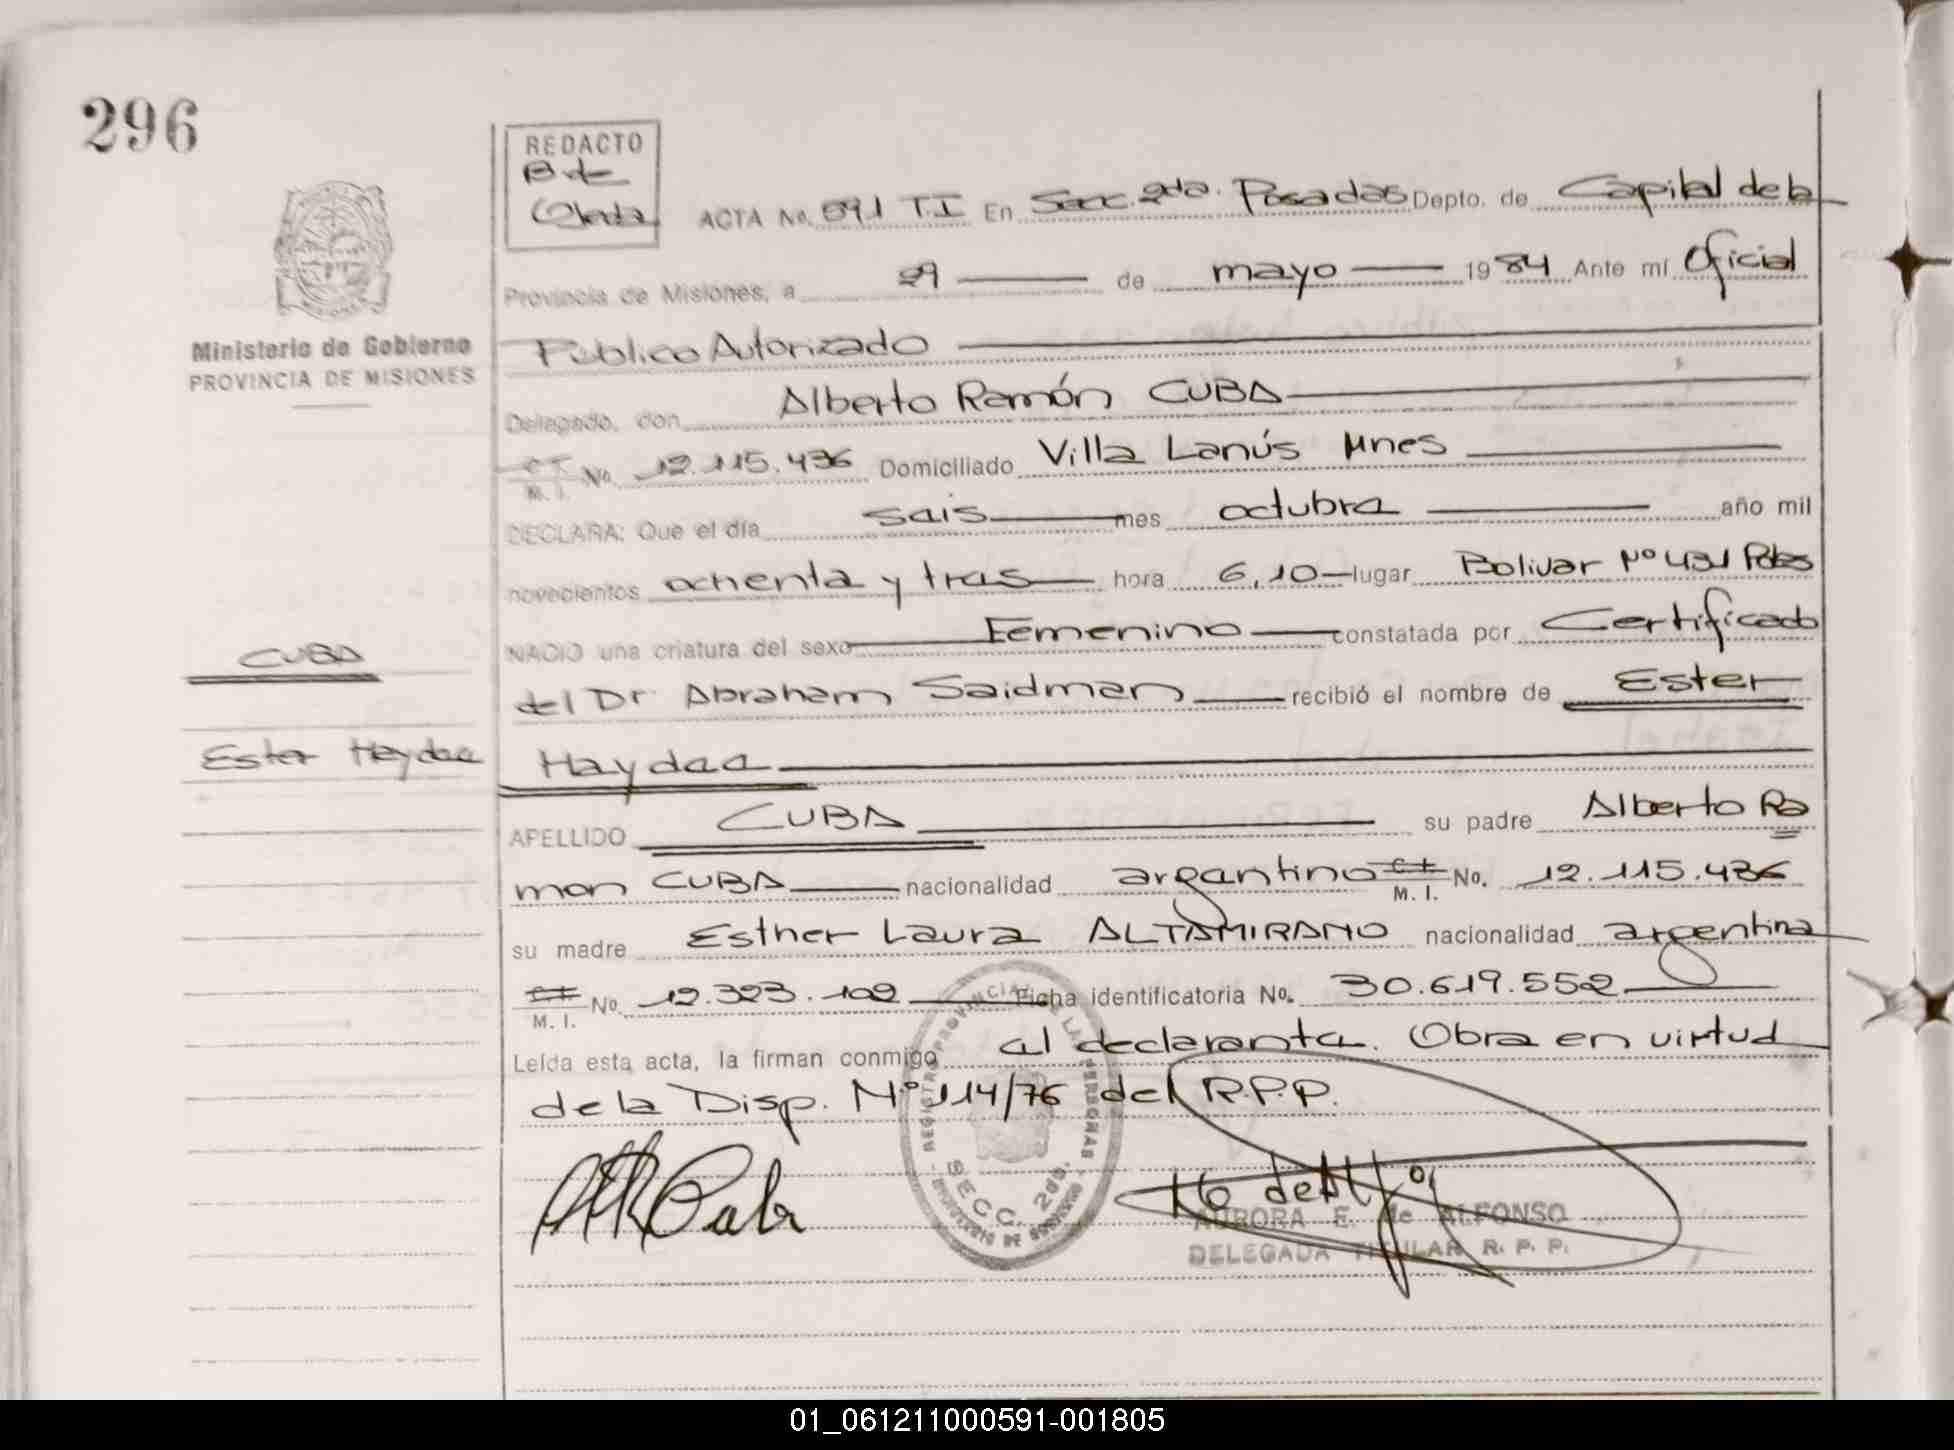 296
REDACTO
B. de
Ojeda
ACTA No. 591 T.I En Secc. 2da. Posadas Depto. de Capital de la
Provincia de Misiones, a 29 de mayo 1984 Ante mí Oficial
Ministerio de Gobierno
PROVINCIA DE MISIONES
Público Autorizado
Delegado, don Alberto Ramón CUBA
C.I. M. I. No. 12.115.436 Domiciliado Villa Lanús Mnes
DECLARA: Que el día seis mes octubre año mil
novecientos ochenta y tres hora 6,10 lugar Bolivar Nº 431 Pdas
NACIO una criatura del sexo Femenino constatada por Certificado
CUBA
del Dr Abraham Saidman recibió el nombre de Ester
Ester Haydee
Haydee
APELLIDO CUBA su padre Alberto Ra
mon CUBA nacionalidad argentino C.I. M. I. No. 12.115.436
su madre Esther Laura ALTAMIRANO nacionalidad argentina
C.I. M. I. No. 12.323.102 Ficha identificatoria No. 30.619.552
Leída esta acta, la firman conmigo el declarante. Obra en virtud
de la Disp. Nº 114/76 del R.P.P.
REGISTRO PROVINCIAL DE LAS PERSONAS
SECC. 2da.
AURORA E. de ALFONSO
DELEGADA TITULAR R. P. P.
01_061211000591-001805